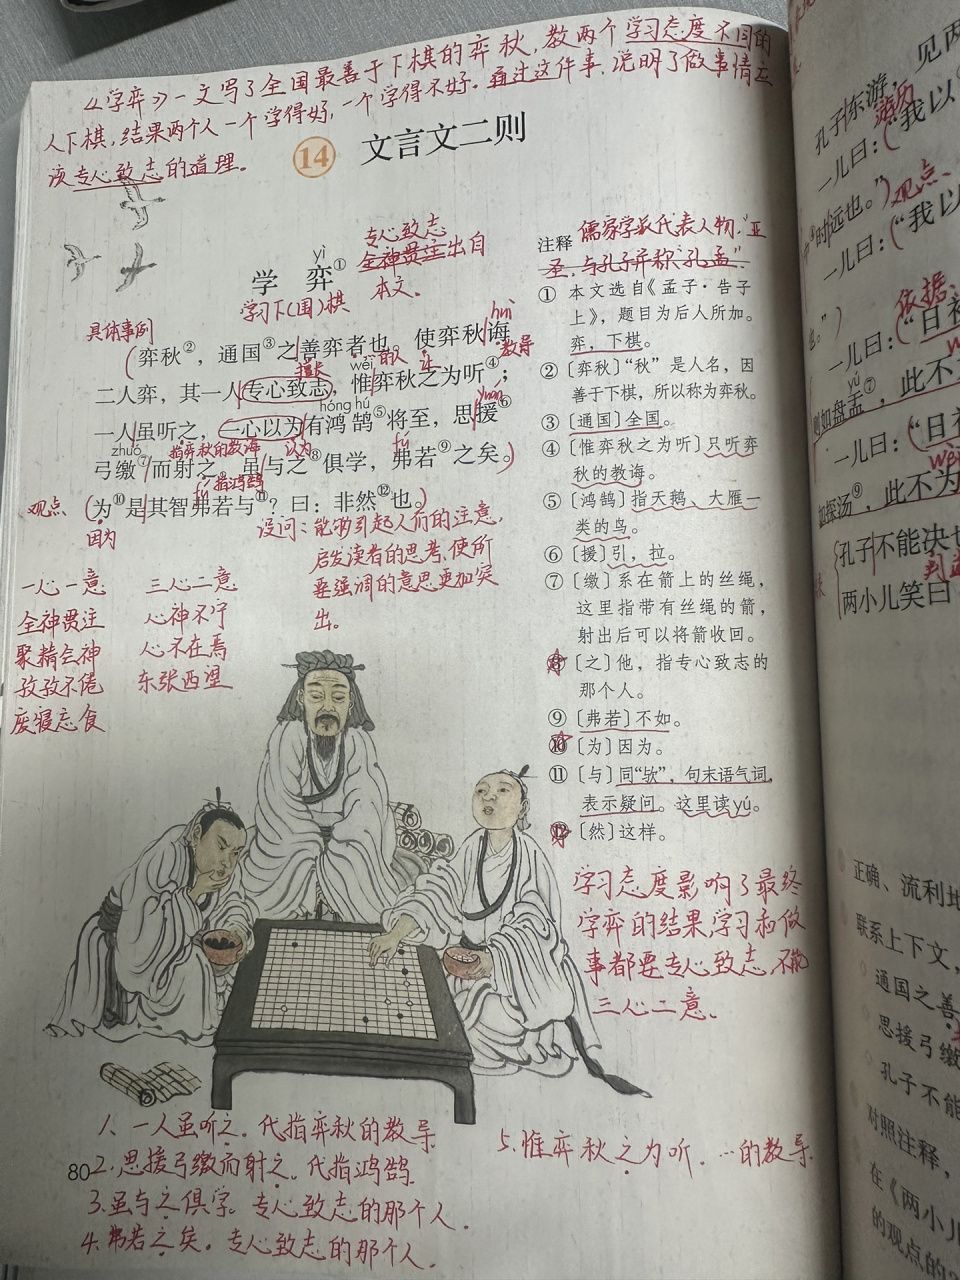 《学弈》一文写了全国最善于下棋的弈秋,教两个学习态度不同的
人下棋,结果两个人一个学得好,一个学得不好。通过这件事,说明了做事情应
该专心致志的道理。
14 文言文二则
专心致志
全神贯注出自
本文。
yì
学 弈①
学习下(围)棋
具体事例
(弈秋②,通国③之善弈者也。使弈秋诲
huì
教导
擅长
的人
wéi
二人弈,其一人专心致志,惟弈秋之为听④;
hóng hú
yuán
一人虽听之,一心以为有鸿鹄⑤将至,思援⑥
zhuó
指弈秋的教诲
以为
fú
弓缴⑦而射之。虽与之⑧俱学,弗若⑨之矣。)
指鸿鹄
fú
观点
(为⑩是其智弗若与⑪?曰:非然⑫也。)
因为
设问:能够引起人们的注意,
启发读者的思考,使所
要强调的意思更加突
出。
一心一意
全神贯注
聚精会神
孜孜不倦
废寝忘食
三心二意
心神不宁
心不在焉
东张西望
注释
儒家学派代表人物,“亚
圣”,与孔子并称“孔孟”
① 本文选自《孟子·告子
上》,题目为后人所加。
弈,下棋。
② 〔弈秋〕“秋”是人名,因
善于下棋,所以称为弈秋。
③ 〔通国〕全国。
④ 〔惟弈秋之为听〕只听弈
秋的教诲。
⑤ 〔鸿鹄〕指天鹅、大雁一
类的鸟。
⑥ 〔援〕引,拉。
⑦ 〔缴〕系在箭上的丝绳,
这里指带有丝绳的箭,
射出后可以将箭收回。
⑧ 〔之〕他,指专心致志的
那个人。
⑨ 〔弗若〕不如。
⑩ 〔为〕因为。
⑪ 〔与〕同“欤”,句末语气词,
表示疑问。这里读yú。
⑫ 〔然〕这样。
学习态度影响了最终
学弈的结果,学习和做
事都要专心致志,不能
三心二意。
1、一人虽听之。代指弈秋的教导
2、思援弓缴而射之。代指鸿鹄
3.虽与之俱学。专心致志的那个人。
4.弗若之矣。专心致志的那个人
5.惟弈秋之为听。…的教导
80
见两
孔子东游,
游历
一儿曰:(“我以
时远也。”)
观点
一儿曰:(“我以
也。”)
依据
一儿曰:(“日初
yú
则如盘盂⑦,此不为
一儿曰:(“日初
wéi
如探汤⑨,此不为
孔子不能决也
判
两小儿笑曰
正确、流利地
联系上下文,
通国之善
思援弓缴
孔子不能
对照注释,
在《两小儿
的观点的